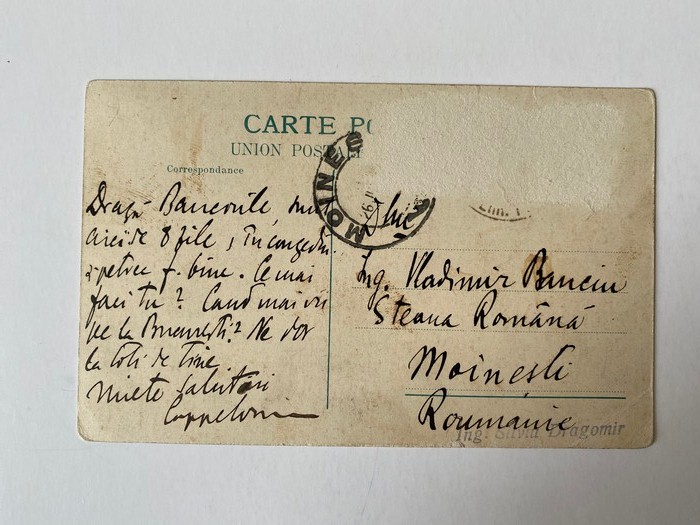 CARTE PO
UNION POSTAL
Correspondance
MOINEȘ
Dragă Banciule, sunt
aici de 8 zile, în concediu
petrec f. bine. Ce mai
faci tu? Cand mai vii
pe la București? Ne dor
la toti de tine
Multe salutări
Dlui
Ing. Vladimir Banciu
Steaua Română
Moinesti
Roumanie
Ing. Silviu Dragomir